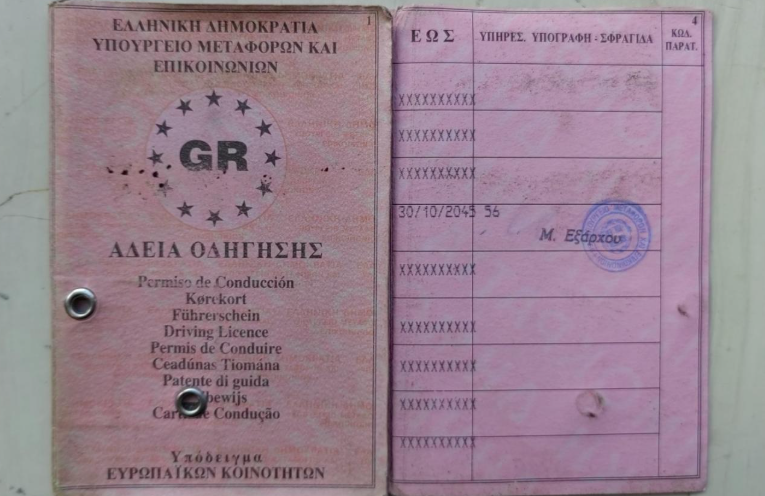 1
ΕΛΛΗΝΙΚΗ ΔΗΜΟΚΡΑΤΙΑ
ΥΠΟΥΡΓΕΙΟ ΜΕΤΑΦΟΡΩΝ ΚΑΙ
ΕΠΙΚΟΙΝΩΝΙΩΝ
GR
ΑΔΕΙΑ ΟΔΗΓΗΣΗΣ
Permiso de Conducción
Kørekort
Führerschein
Driving Licence
Permis de Conduire
Ceadúnas Tiomána
Patente di guida
bewijs
de Condução
Υπόδειγμα
ΕΥΡΩΠΑΪΚΩΝ ΚΟΙΝΟΤΗΤΩΝ
4
ΕΩΣ ΥΠΗΡΕΣ. ΥΠΟΓΡΑΦΗ - ΣΦΡΑΓΙΔΑ ΚΩΔ. ΠΑΡΑΤ.
XXXXXXXXXX
XXXXXXXXXX
XXXXXXXXXX
30/10/2045 56
Μ. Εξάρχου
XXXXXXXXXX
XXXXXXXXXX
XXXXXXXXXX
XXXXXXXXXX
XXXXXXXXXX